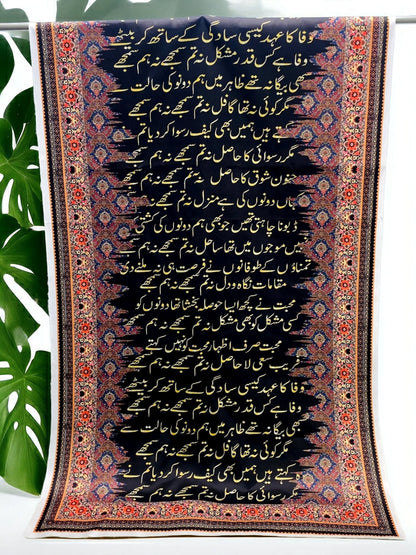 وفا کا عہد کیسی سادگی کے ساتھ کر بیٹھے
وفا ہے کس قدر مشکل نہ تم سمجھے نہ ہم سمجھے
سبھی بیگانہ تھے ظاہر میں ہم دونوں کی حالت سے
مگر کوئی نہ تھا غافل نہ تم سمجھے نہ ہم سمجھے
کہتے ہیں ہمیں بھی کیف رسوا کر دیا تم
مگر رسوائی کا حاصل نہ تم سمجھے نہ ہم سمجھے
جنون شوق کا حاصل نہ تم سمجھے نہ ہم سمجھے
ہاں دونوں کی ہے منزل نہ تم سمجھے نہ ہم سمجھے
ڈبونا چاہتی تھیں جو بھی ہم دونوں کی کشتی
ہیں موجوں میں تھا ساحل نہ تم سمجھے نہ ہم سمجھے
تمناؤں کے طوفانوں نے فرصت ہی نہ ملنے دی
مقامات نگاہ و دل نہ تم سمجھے نہ ہم سمجھے
محبت نے کچھ ایسا حوصلہ بخشا تھا دونوں کو
کسی مشکل کو بھی مشکل نہ تم سمجھے نہ ہم سمجھے
محبت صرف اظہار محبت کو نہیں کہتے
یہ سعی لا حاصل نہ تم سمجھے نہ ہم سمجھے
وفا کا عہد کیسی سادگی کے ساتھ کر بیٹھے
وفا ہے کس قدر مشکل نہ تم سمجھے نہ ہم سمجھے
بھی بیگانہ تھے ظاہر میں ہم دونوں کی حالت سے
مگر کوئی نہ تھا غافل نہ تم سمجھے نہ ہم سمجھے
کہتے ہیں ہمیں بھی کیف رسوا کر دیا تم نے
مگر رسوائی کا حاصل نہ تم سمجھے نہ ہم سمجھے